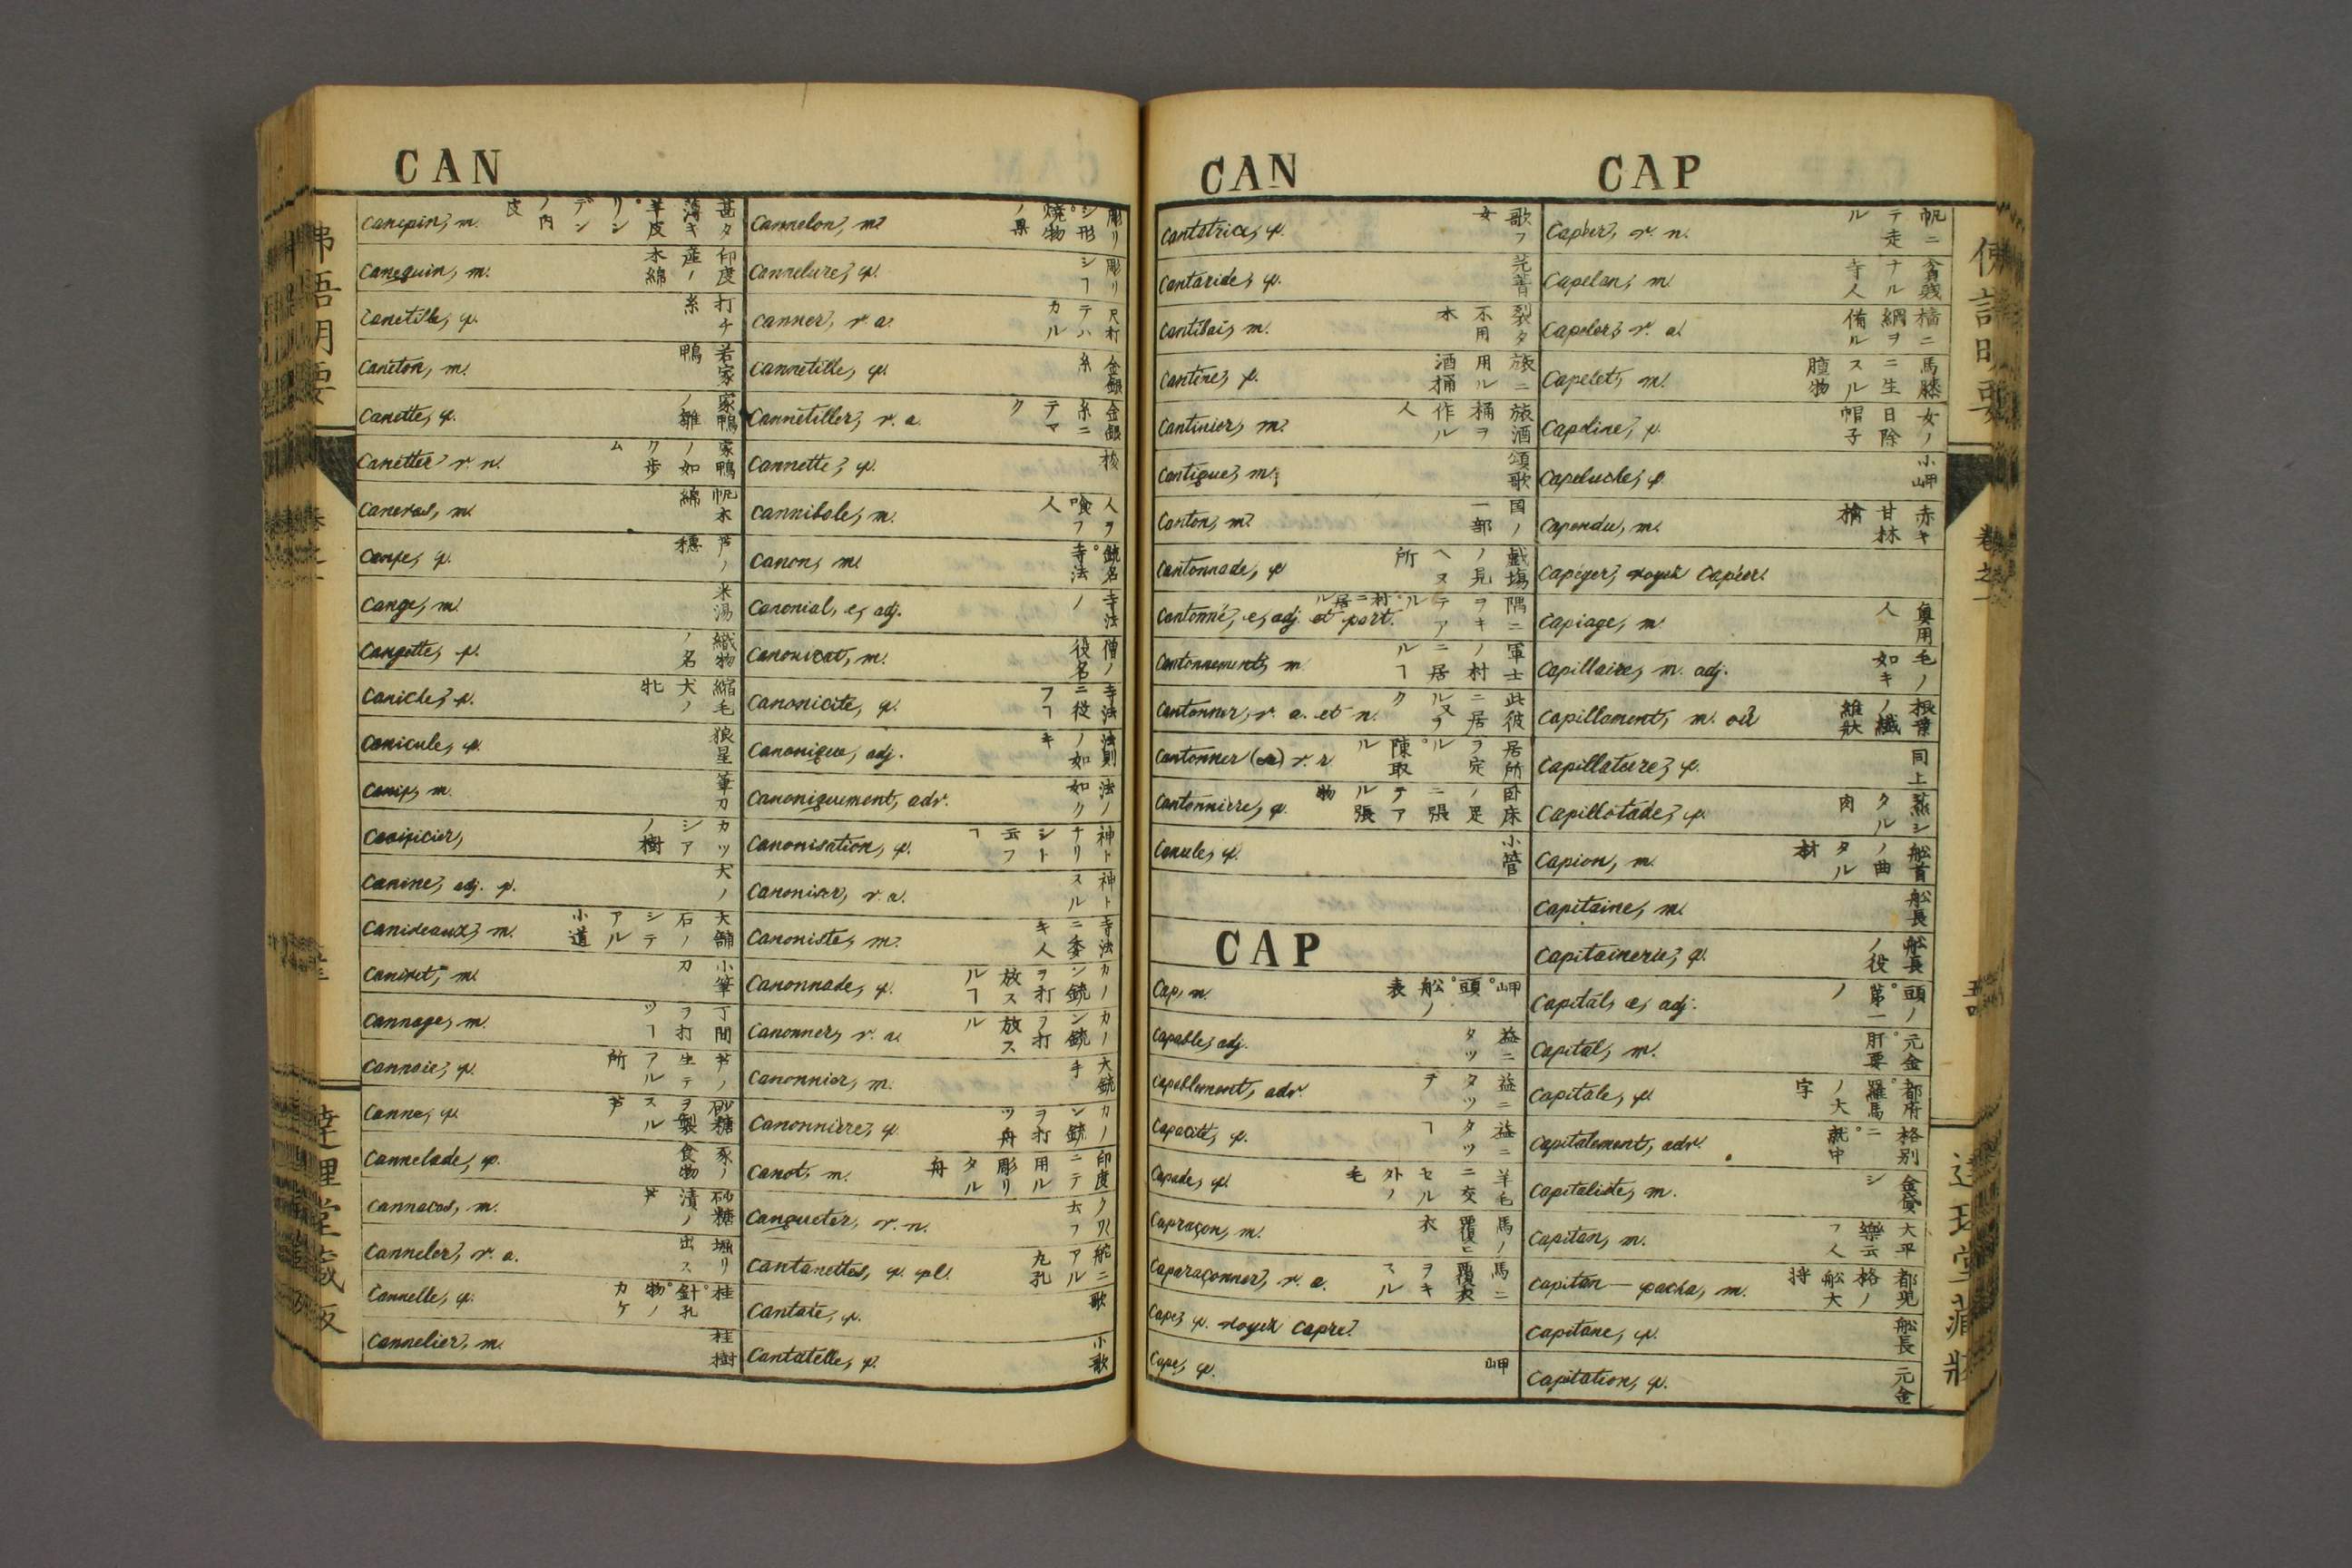 CAN
Canepin, m. 甚タ薄キ羊皮。リンデンノ内皮
Canequin, m. 印度産ノ木綿
Canetille, f. 打チ糸
Caneton, m. 若家鴨
Canette, f. 家鴨ノ雛
Canetter v. n. 家鴨ノ如ク歩ム
Canevas, m. 帆木綿
Cange, m. 米湯
Cangette, f. 織物ノ名
Caniche, f. 縮毛犬ノ牝
Canicule, f. 狼星
Canif, m. 筆刀
Canificier, カツシアノ樹
Canine, adj. f. 犬ノ
Caniveaux, m. 大舗石ノシテアル小道
Canivet, m. 小筆刀
Cannage, m. 丁間ヲ打ツヿ
Cannaie, f. 芦ノ生テアル所
Canne, f. 砂糖ヲ製スル芦
Cannelade, f. 食物
Cannacos, m. 砂糖漬ノ芦
Canneler, v. a. 堀リ出ス
Cannelle, f. 桂。針孔。物ノカケ
Cannelier, m. 桂樹
Cannelon, m. 彫リシ形。焼物ノ果
Cannelure, f. 彫リシヿ
Canner, v. a. 尺打テハカル
Cannetille, f. 金銀糸
Cannetiller, v. a. 金銀糸ニテマク
Cannette, f.
Cannibale, m. 人ヲ喰フ人
Canon, m. 銃名。寺法
Canonial, e, adj. 寺法ノ
Canonicat, m. 僧ノ役名
Canonicité, f. 寺法ニ役フヿ
Canonique, adj. 法則ノ如キ
Canoniquement, adv. 法ノ如ク
Canonisation, f. 神トナリシト云フヿ
Canoniser, v. a. 神トスル
Canoniste, m. 寺法ニ委キ人
Canonnade, f. カノン銃ヲ打放スルヿ
Canonner, v. a. カノン銃ヲ打放スル
Canonnier, m. 大銃手
Canonnière, f. カノン銃ヲ打ツ舟
Canot, m. 印度ニテ用ル彫リタル舟
Canqueter, v. n.
Cantanettes, f. pl. 舵ニアル丸孔
Cantate, f. 歌
Cantatelle, f. 小歌
CAN
CAP
Cantatrice, f. 歌フ女
Cantaride, f. 芫菁
Cantibai, m. 裂タ不用木
Cantine, f. 旅ニ用ル酒桶
Cantinier, m. 旅酒桶ヲ作ル人
Cantique, m. 頌歌
Canton, m. 国ノ一部
Cantonnade, f. 戯場ノ見ヘヌ所
Cantonné, e, adj. et part. 隅ヲキテアル。村ニ居ル
Cantonnement, m. 軍士ノ村ニ居ルヿ
Cantonner, v. a. et n.
Cantonner (se) v. r. 居所ヲ定ル。陳取ル
Cantonnière, f. 卧床ノ足ニ張テアル張物
Canule, f. 小管
CAP
Cap, m. 岬。頭。船ノ表
Capable, adj. 益ニタツ
Capablement, adv. 益ニタツテ
Capacité, f. 益ニタツヿ
Capade, f. 羊毛ニ交セル外ノ毛
Capraçon, m. 馬ノ覆ヒ衣
Caparaçonner, v. a. 馬ニ覆衣ヲキスル
Cape, f. voyez Capre.
Cape, f. 岬
Capéer, v. n. 帆ニテ走ル
Capelan, m. 貪戝ナル寺人
Capeler, v. a. 檣ニ綱ヲ侑ル
Capelet, m. 馬膝ニ生スル膿物
Capeline, f. 女ノ日除帽子
Capeluche, f. 小岬
Capendu, m. 赤キ甘林檎
Capéger, voyez Capéer.
Capiage, m.
Capillaire, m. adj. 毛ノ如キ
Capillament, m. ou 根葉ノ纖維狀
Capillature, f. 同上
Capillotade, f. 蒸シタル肉
Capion, m. 船首ノ曲タル材
Capitaine, m. 船長
Capitainerie, f. 船長ノ役
Capital, e, adj. 頭ノ。第一ノ
Capital, m. 元金。肝要
Capitale, f. 都府。羅馬ノ大字
Capitalement, adv. 格別ニ。就中
Capitaliste, m. 金貸シ
Capitan, m. 大平樂云フ人
Capitan—pacha, m. 都児格ノ船大将
Capitane, f. 船長
Capitation, f. 元金
佛語明要
卷之一
達理堂藏版